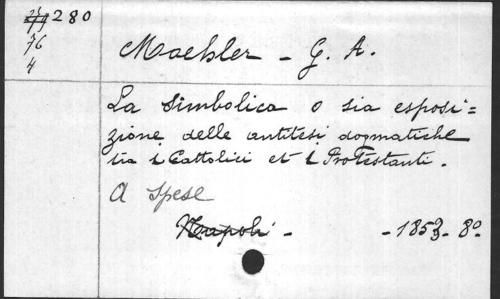 280
76
4
Moehler - G. A.
La Simbolica o sia esposi=
zione delle antitesi dogmatiche
tra i Cattolici et i Protestanti.
A spese
Napoli - - 1853 - 8º